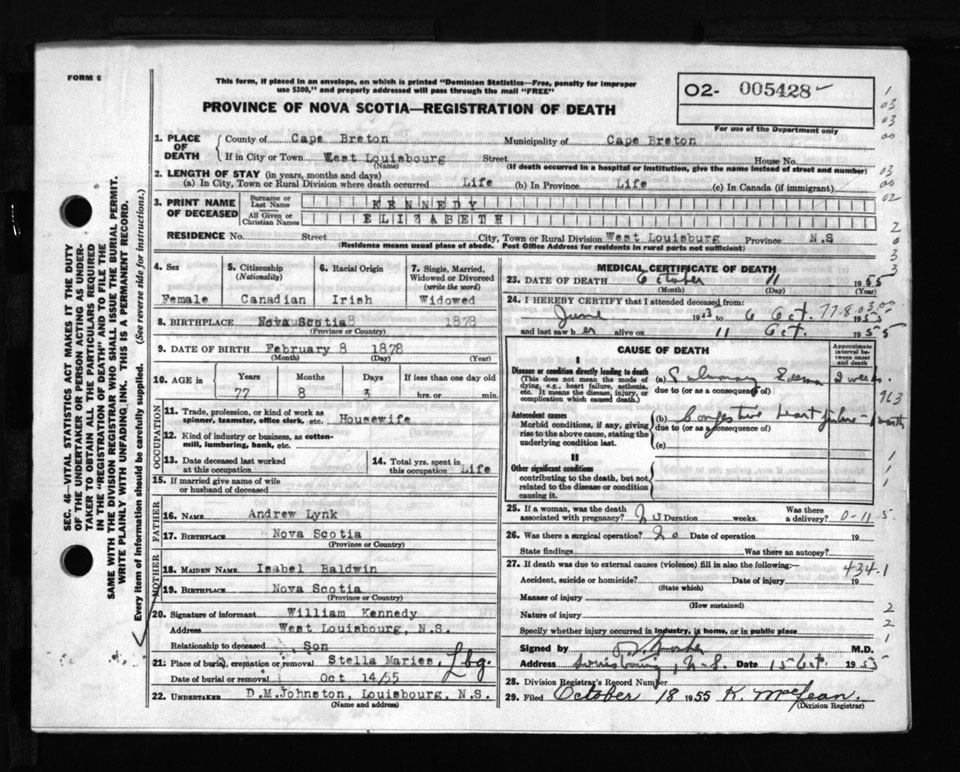 FORM 6
This form, if placed in an envelope, on which is printed "Dominion Statistics—Free, penalty for improper
use $300," and properly addressed will pass through the mail "FREE"
PROVINCE OF NOVA SCOTIA—REGISTRATION OF DEATH
O2- 005428
For use of the Department only
1. PLACE OF DEATH { County of Cape Breton Municipality of Cape Breton
If in City or Town West Louisbourg Street House No.
(Name) (If death occurred in a hospital or institution, give the name instead of street and number)
2. LENGTH OF STAY (in years, months and days)
(a) In City, Town or Rural Division where death occurred Life (b) In Province Life (c) In Canada (if immigrant)
3. PRINT NAME OF DECEASED { Surname or Last Name KENNEDY
All Given or Christian Names ELIZABETH
RESIDENCE No. Street City, Town or Rural Division West Louisburg Province N.S
(Residence means usual place of abode. Post Office Address for residents in rural parts not sufficient)
SEC. 46—VITAL STATISTICS ACT MAKES IT THE DUTY
OF THE UNDERTAKER OR PERSON ACTING AS UNDER-
TAKER TO OBTAIN ALL THE PARTICULARS REQUIRED
IN THE "REGISTRATION OF DEATH" AND TO FILE THE
SAME WITH THE DIVISION REGISTRAR WHO SHALL ISSUE THE BURIAL PERMIT.
WRITE PLAINLY WITH UNFADING INK. THIS IS A PERMANENT RECORD.
Every item of information should be carefully supplied. (See reverse side for instructions.)
4. Sex 5. Citizenship (Nationality) 6. Racial Origin 7. Single, Married, Widowed or Divorced (write the word)
Female Canadian Irish Widowed
8. BIRTHPLACE Nova Scotia 1878
(Province or Country)
9. DATE OF BIRTH February 8 1878
(Month) (Day) (Year)
10. AGE in { Years Months Days If less than one day old
77 8 3 hrs. or min.
OCCUPATION
11. Trade, profession, or kind of work as spinner, teamster, office clerk, etc. Housewife
12. Kind of industry or business, as cotton-mill, lumbering, bank, etc.
13. Date deceased last worked at this occupation 14. Total yrs. spent in this occupation Life
15. If married give name of wife or husband of deceased
FATHER
16. NAME Andrew Lynk
17. BIRTHPLACE Nova Scotia
(Province or Country)
MOTHER
18. MAIDEN NAME Isabel Baldwin
19. BIRTHPLACE Nova Scotia
(Province or Country)
20. Signature of informant William Kennedy
Address West Louisbourg, N.S.
Relationship to deceased Son
21. Place of burial, cremation or removal Stella Maries, Lbg.
Date of burial or removal Oct 14/55
22. UNDERTAKER D.M.Johnston, Louisbourg, N.S.
(Name and address)
MEDICAL CERTIFICATE OF DEATH
23. DATE OF DEATH October 11 1955
(Month) (Day) (Year)
24. I HEREBY CERTIFY that I attended deceased from:
June 1953 to 6 Oct. 1955
and last saw her alive on 11 Oct. 1955
77-8-03
CAUSE OF DEATH Approximate interval between onset and death
I
Disease or condition directly leading to death
(This does not mean the mode of dying, e.g., heart failure, asthenia, etc. It means the disease, injury, or complication which caused death.)
(a) Pulmonary Edema 2 weeks
due to (or as a consequence of)
Antecedent causes
Morbid conditions, if any, giving rise to the above cause, stating the underlying condition last.
(b) Congestive heart failure
due to (or as a consequence of)
(c)
II
Other significant conditions
contributing to the death, but not related to the disease or condition causing it.
25. If a woman, was the death associated with pregnancy? No Duration weeks. Was there a delivery? 0-11
26. Was there a surgical operation? No Date of operation 19
State findings Was there an autopsy?
27. If death was due to external causes (violence) fill in also the following:— 434-1
Accident, suicide or homicide? Date of injury 19
(State which)
Manner of injury
(How sustained)
Nature of injury
Specify whether injury occurred in industry, in home, or in public place
Signed by M.D.
Address Louisbourg, N.S. Date 15 Oct 1955
28. Division Registrar's Record Number
29. Filed October 18 1955 K. McLean.
(Division Registrar)